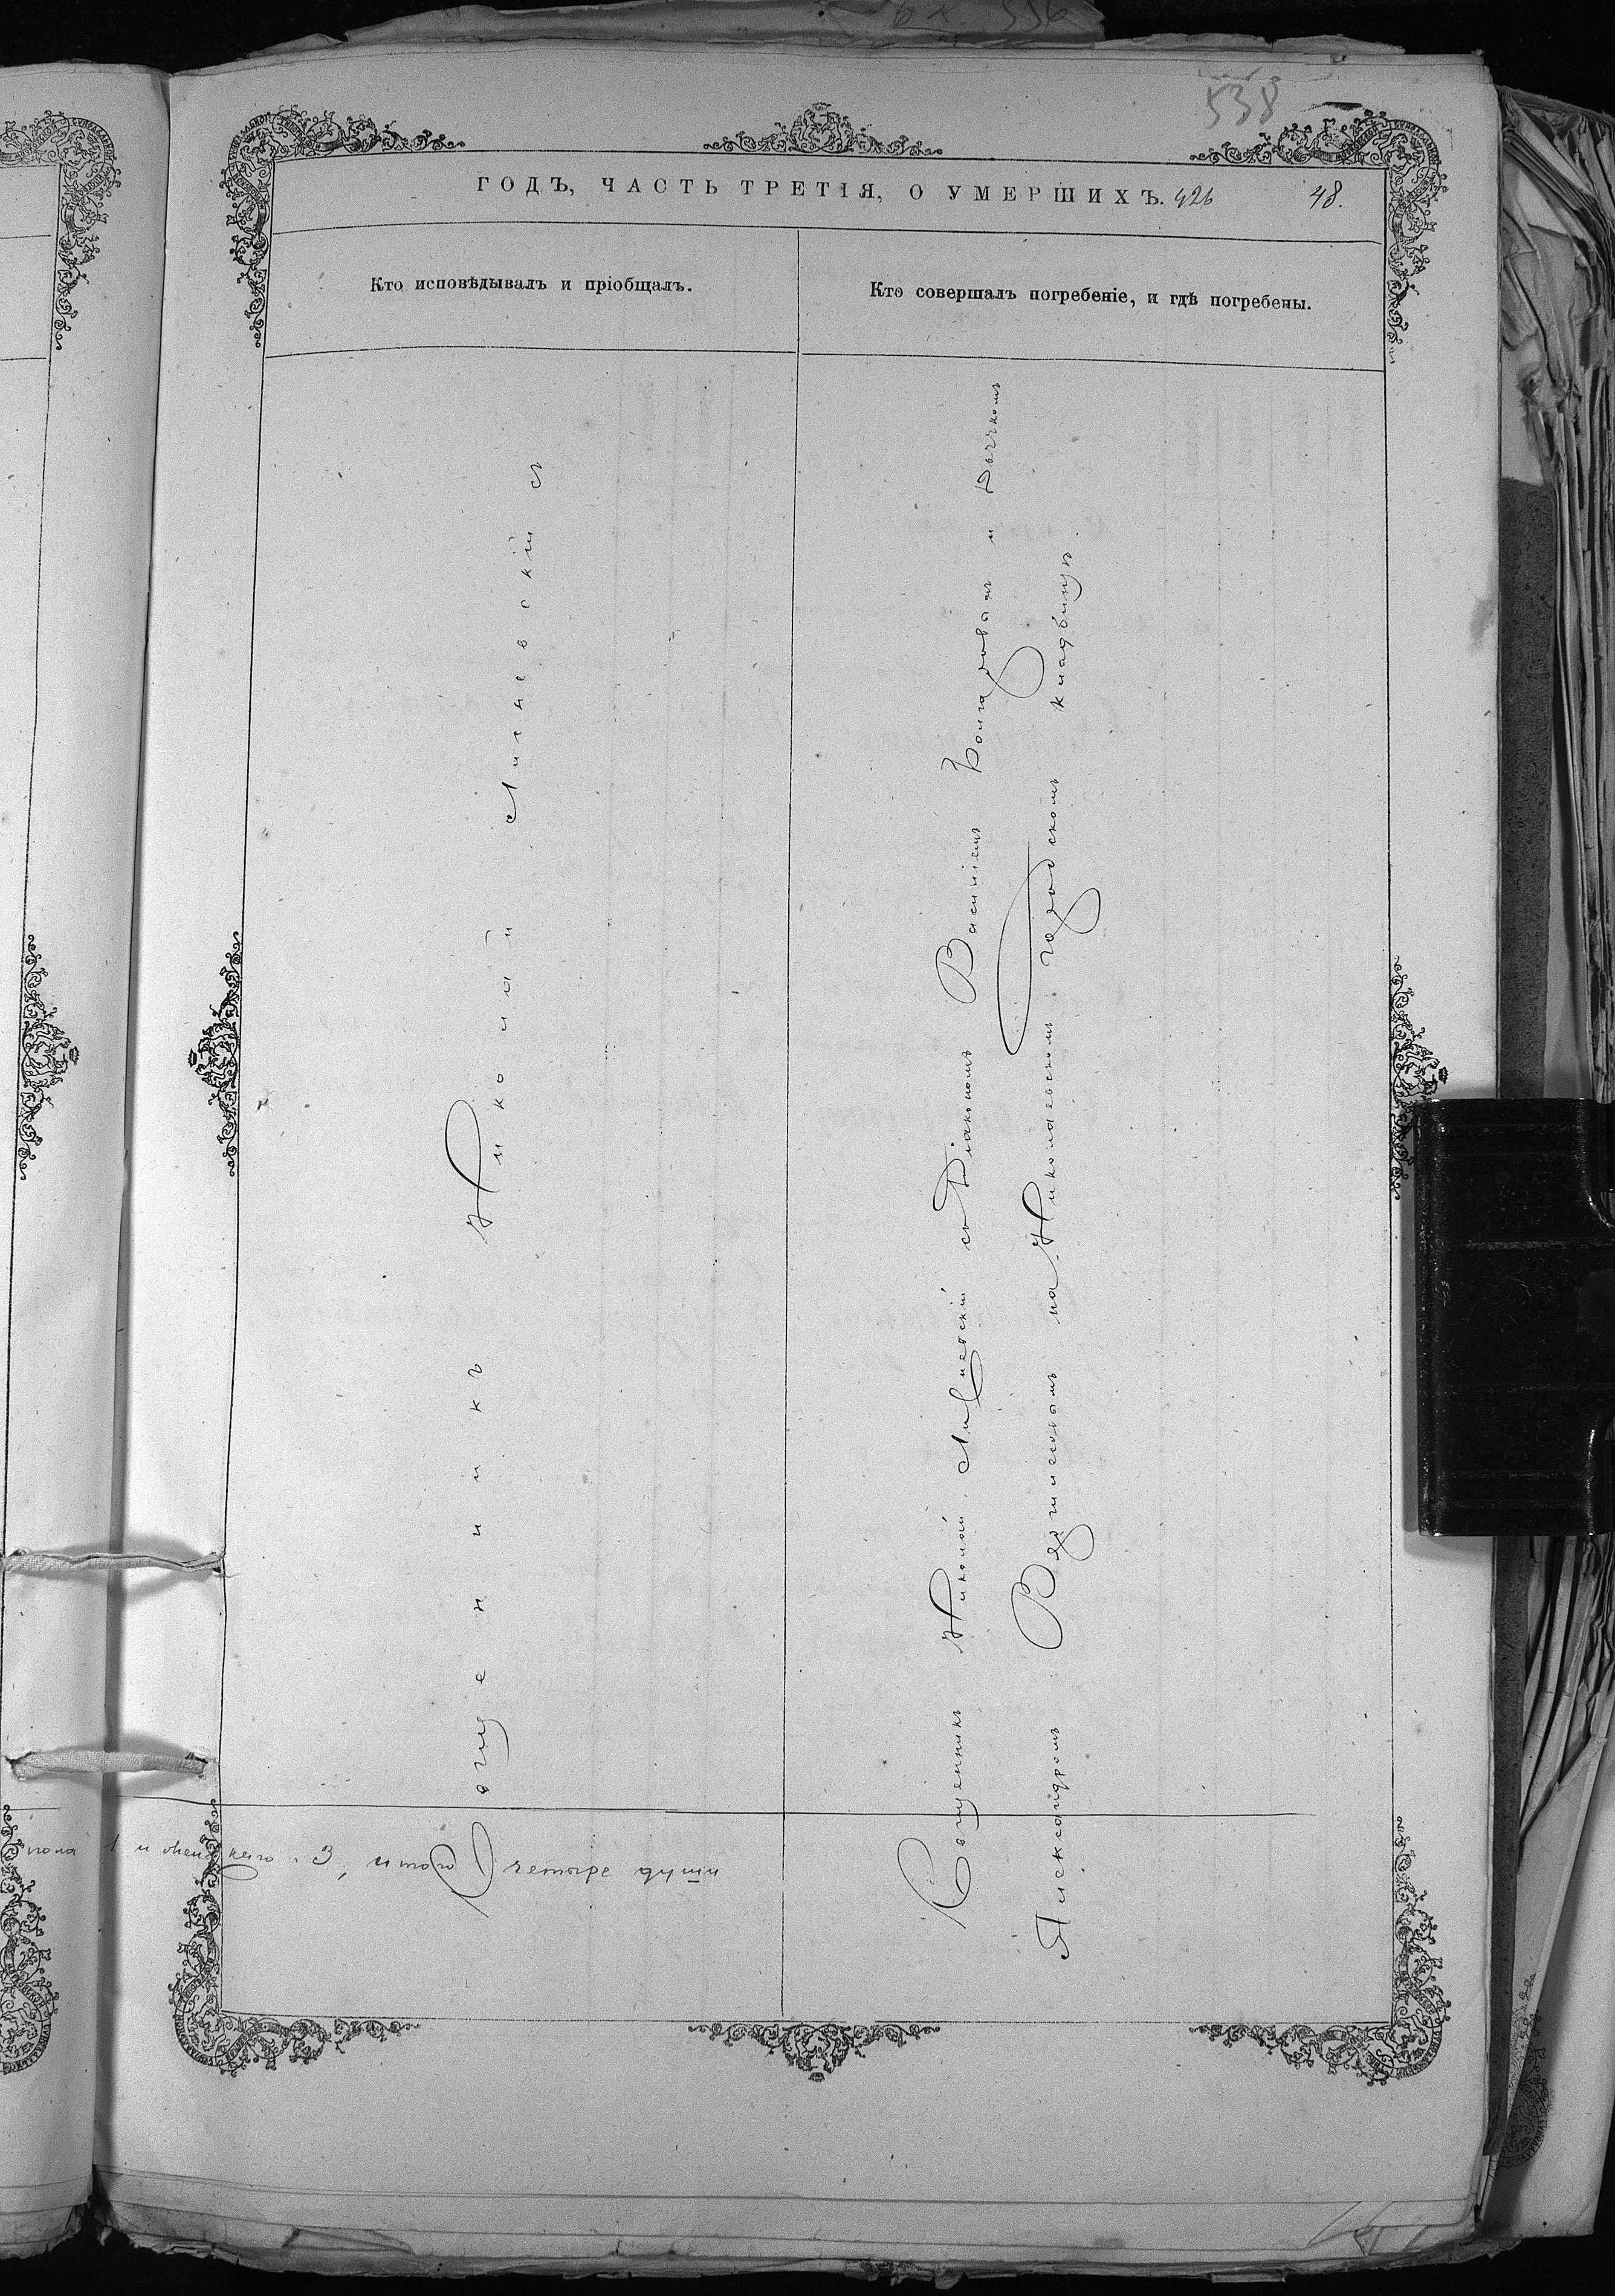 538
ГОДЪ, ЧАСТЬ ТРЕТІЯ, О УМЕРШИХЪ. 426 48.
Кто исповѣдывалъ и пріобщалъ.
Кто совершалъ погребеніе, и гдѣ погребены.
Священникъ Николай Линевскій съ
Священникъ Николай Линевскій съ Діакономъ Василіемъ и Дьячкомъ
Александромъ на Николаевскомъ городскомъ кладбищѣ.
пола 1 и женскаго 3, итого четыре души